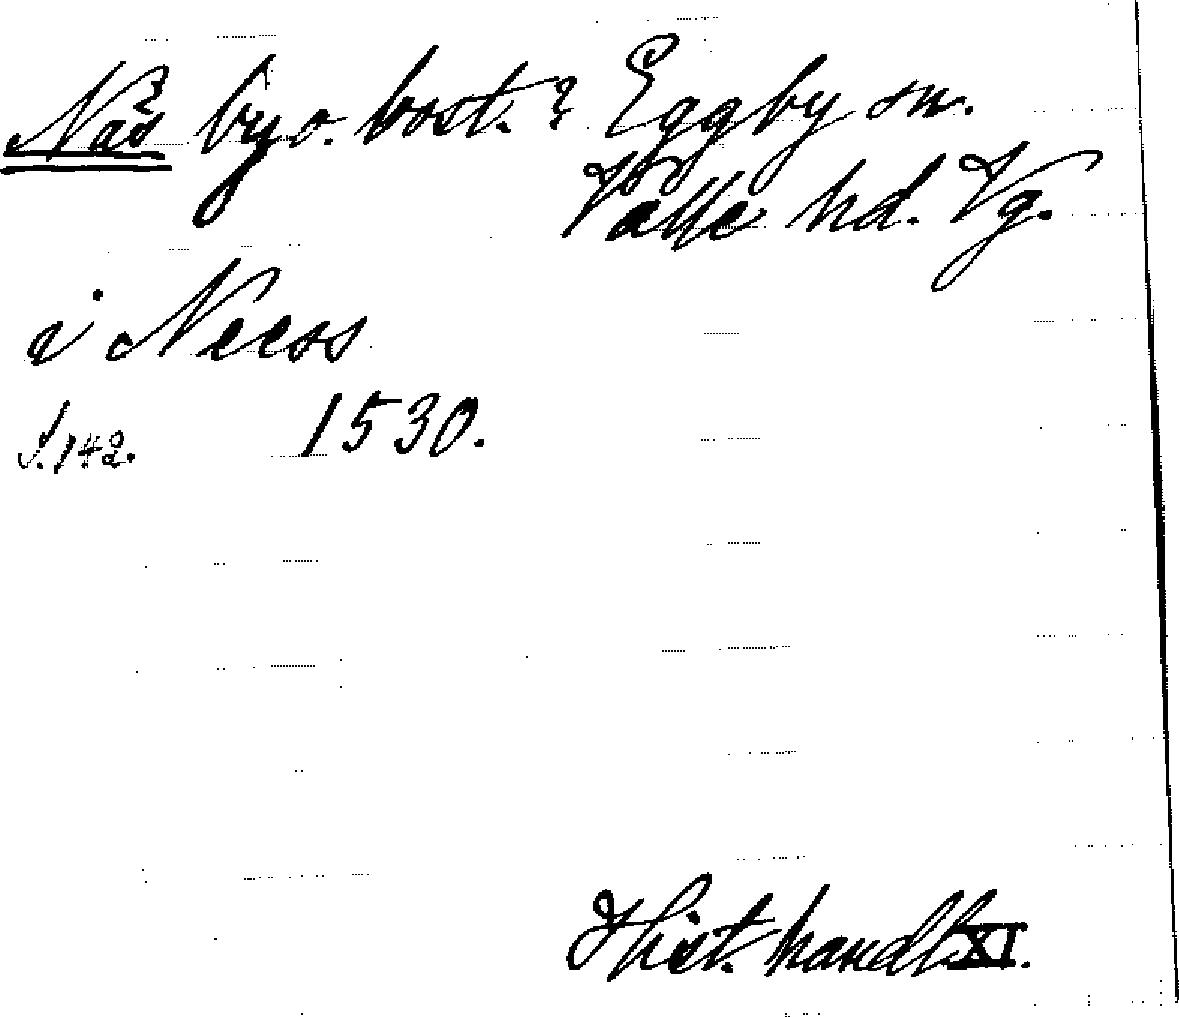 Näs by o. bost. ? Eggby sn.
Valle hd. Vg.
i Neess
S. 142. 1530.
Hist. handl. XI.